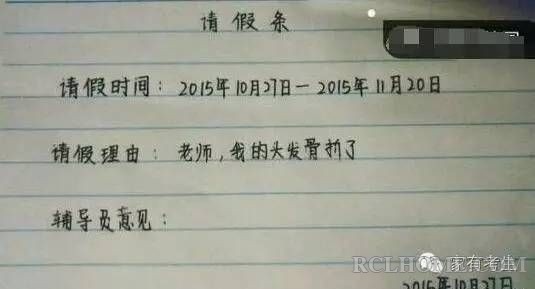 请假条
请假时间：2015年10月27日—2015年11月20日
请假理由：老师，我的头发骨折了
辅导员意见：
家有考生
2015年10月27日